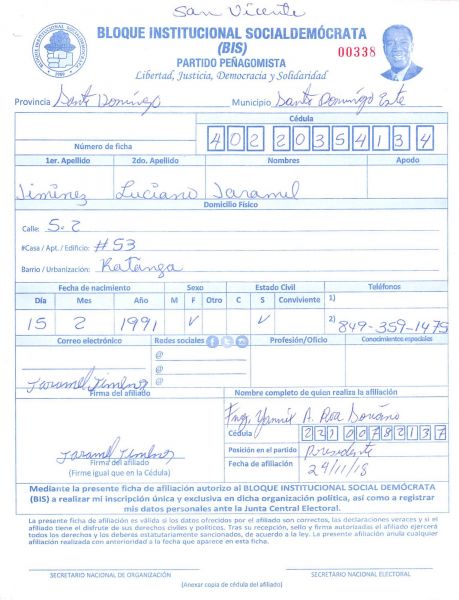 San Vicente
BLOQUE INSTITUCIONAL SOCIALDEMÓCRATA
(BIS)
PARTIDO PEÑAGOMISTA
Libertad, Justicia, Democracia y Solidaridad
00338
Provincia Santo Domingo Municipio Santo Domingo Este
Cédula
Número de ficha 40220354134
1er. Apellido 2do. Apellido Nombres Apodo
Jiménez Luciano Jaramel
Domicilio Físico
Calle: 5-2
#Casa / Apt. / Edificio: #53
Barrio / Urbanización: Katanga
Fecha de nacimiento Sexo Estado Civil Teléfonos
Día Mes Año M F Otro C S Conviviente 1)
15 2 1991 2) 849-359-1475
Correo electrónico Redes sociales Profesión/Oficio Conocimientos especiales
@
@
@
Jaramel Jimenez
Firma del afiliado Nombre completo de quien realiza la afiliación
Ing. Yannit A. Rosa Soriano
Cédula 22100782137
Jaramel Jimenez Posición en el partido Presidente
Firma del afiliado
(Firme igual que en la Cédula) Fecha de afiliación 24/11/18
Mediante la presente ficha de afiliación autorizo al BLOQUE INSTITUCIONAL SOCIAL DEMÓCRATA
(BIS) a realizar mi inscripción única y exclusiva en dicha organización política, así como a registrar
mis datos personales ante la Junta Central Electoral.
La presente ficha de afiliación es válida si los datos ofrecidos por el afiliado son correctos, las declaraciones veraces y si el
afiliado tiene el disfrute de sus derechos civiles y políticos. Tras su recepción, sello y firma autorizadas el afiliado ejercerá
todos los derechos y los deberes estatutariamente sancionados, de acuerdo a la ley. La presente afiliación anula cualquier
afiliación realizada con anterioridad a la fecha que aparece en esta ficha.
SECRETARIO NACIONAL DE ORGANIZACIÓN SECRETARIO NACIONAL ELECTORAL
(Anexar copia de cédula del afiliado)